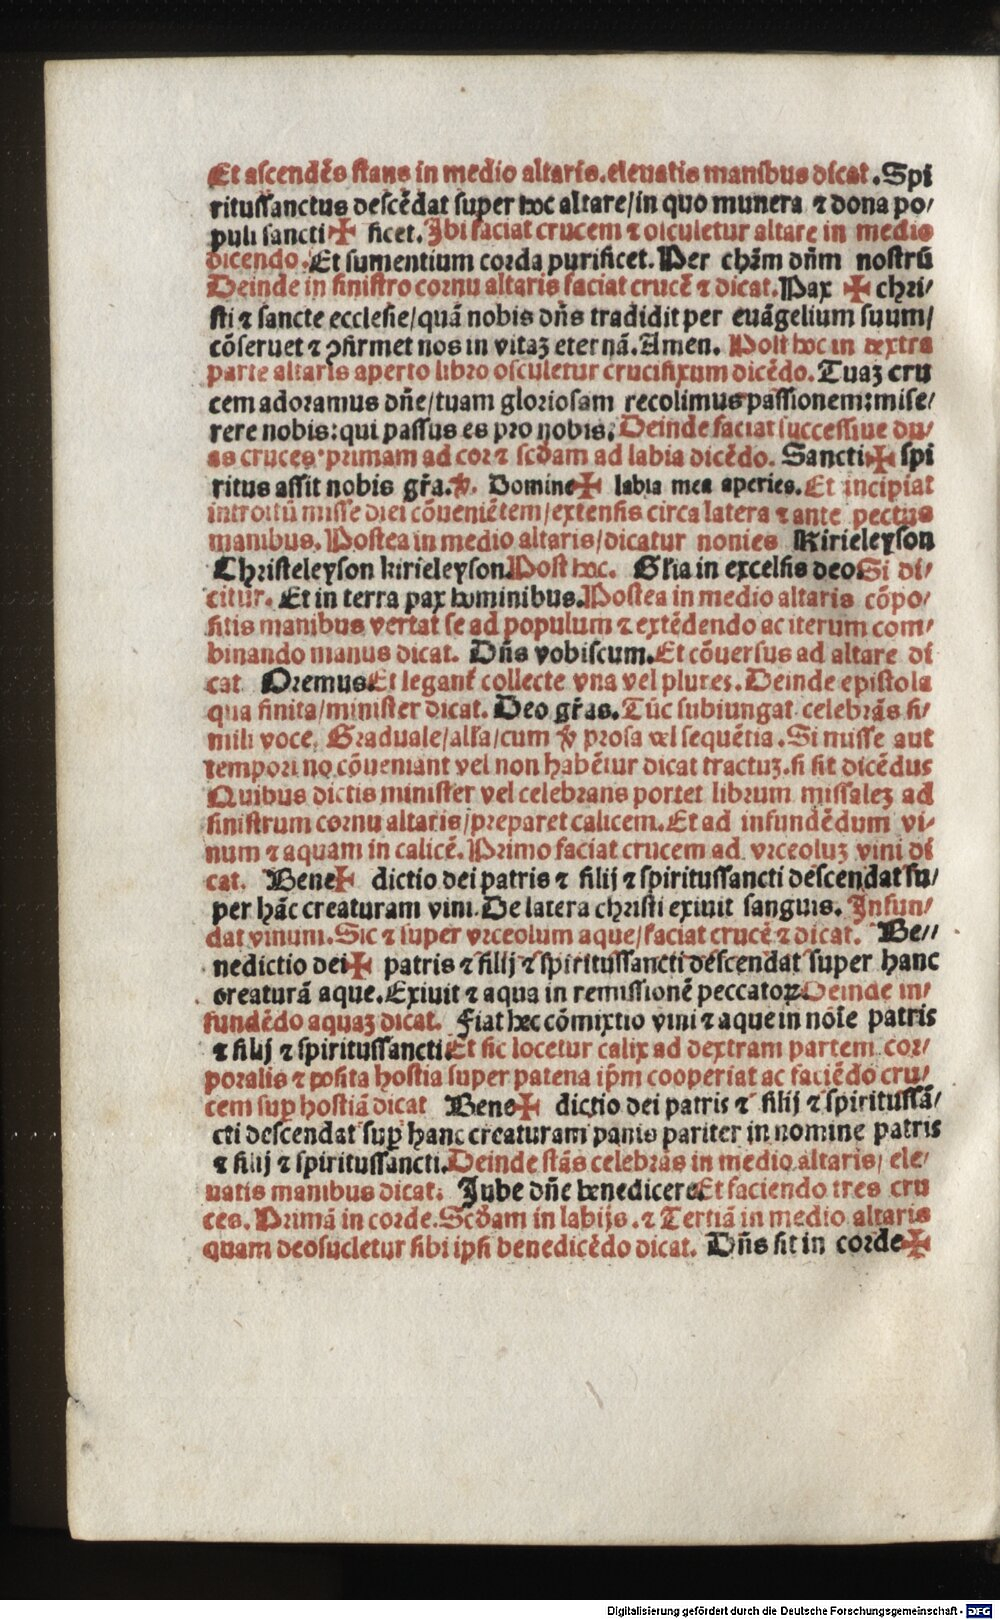 Et ascendēs stans in medio altaris.eleuatis manibus dicat.Spi
ritussanctus descēdat super hoc altare/in quo munera ⁊ dona po/
puli sancti✠ ficet.Ibi faciat crucem ⁊ osculetur altare in medio
dicendo.Et sumentium corda purificet.Per chr̄m dn̄m nostrū
Deinde in sinistro cornu altaris faciat crucē ⁊ dicat.Pax ✠ chri/
sti ⁊ sancte ecclesie/quā nobis dn̄s tradidit per euāgelium suum/
cōseruet ⁊ ꝯfirmet nos in vitaꝫ eternā.Amen. Post hoc in dextra
parte altaris aperto libro osculetur crucifixum dicēdo.Tuaꝫ cru
cem adoramus dn̄e/tuam gloriosam recolimus passionem:mise/
rere nobis:qui passus es pro nobis.Deinde faciat successiue du/
as cruces primam ad cor ⁊ scd̄am ad labia dicēdo. Sancti✠ spi
ritus assit nobis gr̄a.℣. Domine✠ labia mea aperies.Et incipiat
introitū misse diei cōueniētem/extensis circa latera ⁊ ante pectus
manibus.Postea in medio altaris/dicatur nonies Kirieleyson
Christeleyson kirieleyson.Post hoc. Gl̄ia in excelsis deo.Si di/
citur. Et in terra pax hominibus.Postea in medio altaris cōpo/
sitis manibus vertat se ad populum ⁊ extēdendo ac iterum com/
binando manus dicat. Dn̄s vobiscum.Et cōuersus ad altare di
cat Oremus.Et legant̄ collecte vna vel plures.Deinde epistola
qua finita/minister dicat.Deo gr̄as.Tūc subiungat celebrās si/
mili voce. Graduale/alla/cum ℣ prosa vel sequētia.Si misse aut
tempori no cōueniant vel non habētur dicat tractuꝫ.si sit dicēdus
Quibus dictis minister vel celebrans portet librum missaleꝫ ad
sinistrum cornu altaris/preparet calicem.Et ad infundēdum vi/
num ⁊ aquam in calicē.Primo faciat crucem ad vrceoluꝫ vini di
cat. Bene✠ dictio dei patris ⁊ filij ⁊ spiritussancti descendat su/
per hāc creaturam vini.De latera christi exiuit sanguis. Infun/
dat vinum.Sic ⁊ super vrceolum aque/faciat crucē ⁊ dicat. Be//
nedictio dei✠ patris ⁊ filij ⁊ spiritussancti descendat super hanc
creaturā aque.Exiuit ⁊ aqua in remissionē peccatoꝝ.Deinde in/
fundēdo aquaꝫ dicat. Fiat hec cōmixtio vini ⁊ aque in nōie patris
⁊ filij ⁊ spiritussancti.Et sic locetur calix ad dextram partem cor/
poralis ⁊ posita hostia super patena ip̄m cooperiat ac faciēdo cru/
cem suꝑ hostiā dicat Bene✠ dictio dei patris ⁊ filij ⁊ spiritussā/
cti descendat suꝑ hanc creaturam panis pariter in nomine patris
⁊ filij ⁊ spiritussancti.Deinde stās celebras in medio altaris/ ele/
uatis manibus dicat. Jube dn̄e benedicere.Et faciendo tres cru
ces.Primā in corde.Scd̄am in labijs.⁊ Tertiā in medio altaris
quam deosucletur sibi ipsi benedicēdo dicat. Dn̄s sit in corde✠
Digitalisierung gefördert durch die Deutsche Forschungsgemeinschaft - DFG